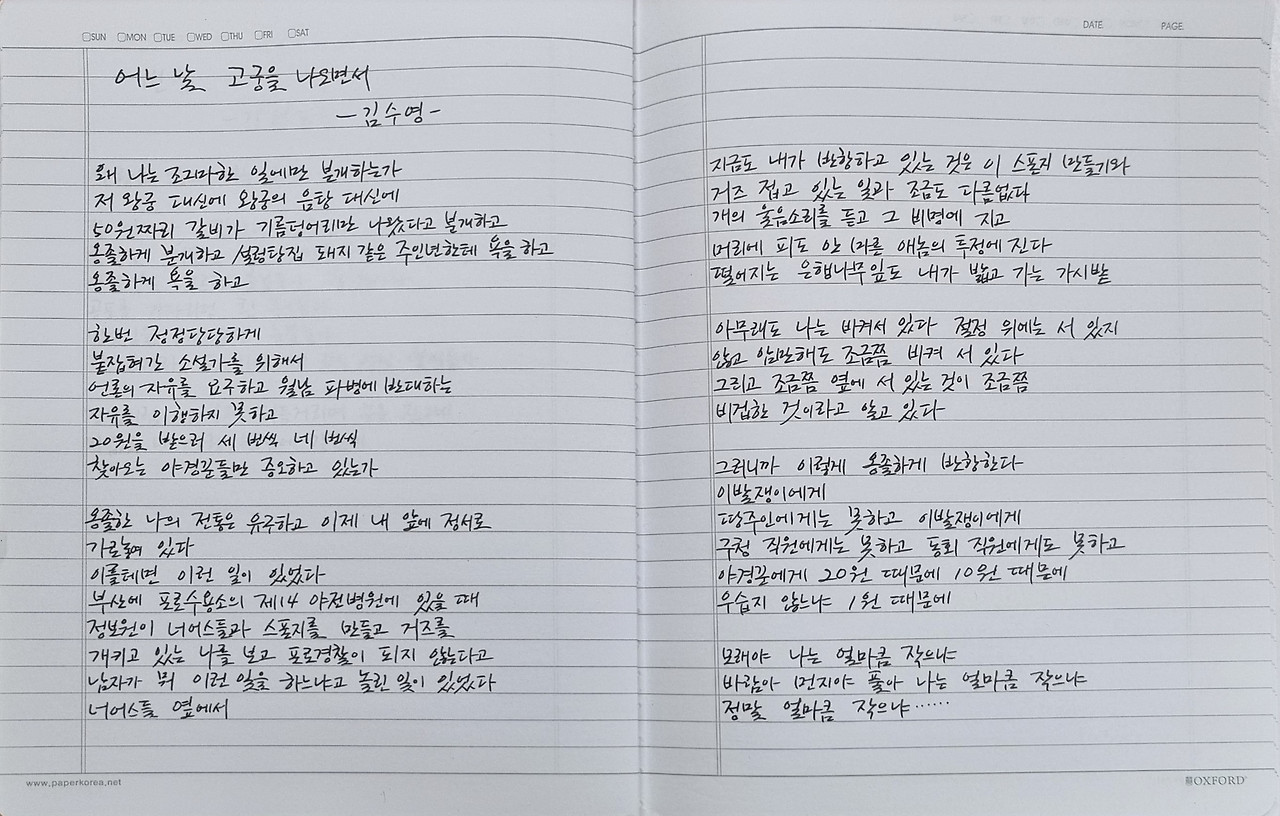 SUN MON TUE WED THU FRI SAT
어느 날 고궁을 나오면서
-김수영-
왜 나는 조그마한 일에만 분개하는가
저 왕궁 대신에 왕궁의 음탕 대신에
50원짜리 갈비가 기름덩어리만 나왔다고 분개하고
옹졸하게 분개하고 설렁탕집 돼지 같은 주인년한테 욕을 하고
옹졸하게 욕을 하고
한번 정정당당하게
붙잡혀간 소설가를 위해서
언론의 자유를 요구하고 월남 파병에 반대하는
자유를 이행하지 못하고
20원을 받으러 세 번씩 네 번씩
찾아오는 야경꾼들만 증오하고 있는가
옹졸한 나의 전통은 유구하고 이제 내 앞에 정서로
가로놓여 있다
이를테면 이런 일이 있었다
부산에 포로수용소의 제14 야전병원에 있을 때
정보원이 너어스들과 스폰지를 만들고 거즈를
개키고 있는 나를 보고 포로경찰이 되지 않는다고
남자가 뭐 이런 일을 하느냐고 놀린 일이 있었다
너어스들 옆에서
www.paperkorea.net
DATE PAGE
지금도 내가 반항하고 있는 것은 이 스폰지 만들기와
거즈 접고 있는 일과 조금도 다름없다
개의 울음소리를 듣고 그 비명에 지고
머리에 피도 안 마른 애놈의 투정에 진다
떨어지는 은행나무잎도 내가 밟고 가는 가시밭
아무래도 나는 비켜서 있다 절정 위에는 서 있지
않고 암만해도 조금쯤 비켜 서 있다
그리고 조금쯤 옆에 서 있는 것이 조금쯤
비겁한 것이라고 알고 있다
그러니까 이렇게 옹졸하게 반항한다
이발쟁이에게
땅주인에게는 못하고 이발쟁이에게
구청 직원에게는 못하고 동회 직원에게도 못하고
야경꾼에게 20원 때문에 10원 때문에
우습지 않느냐 1원 때문에
모래야 나는 얼마큼 작으냐
바람아 먼지야 풀아 나는 얼마큼 작으냐
정말 얼마큼 작으냐……
OXFORD